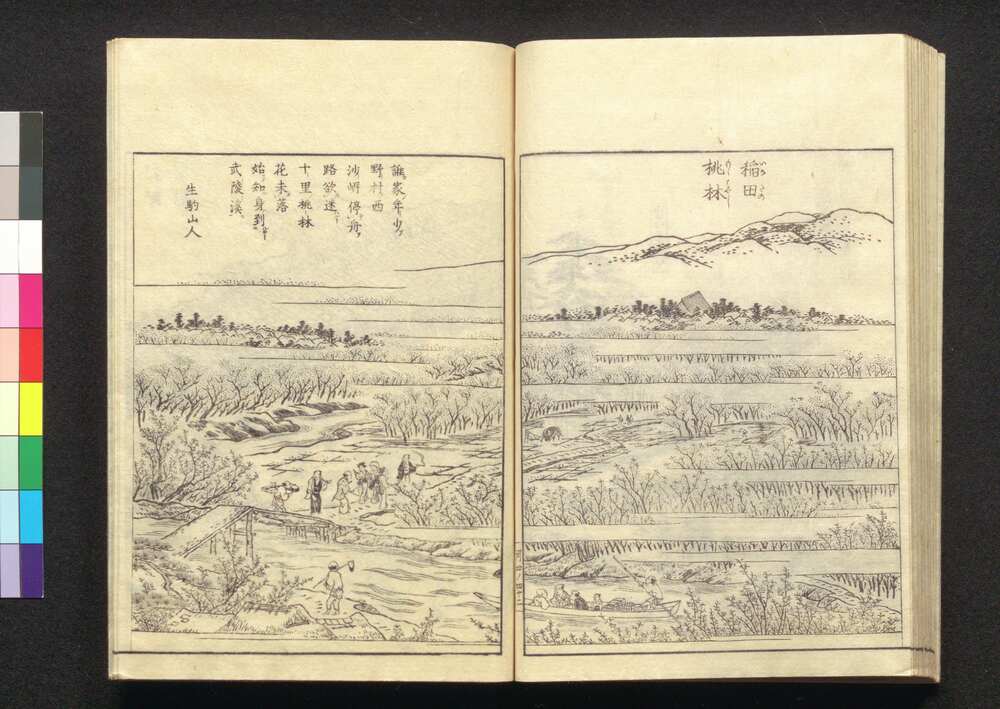 稲田
桃林
誰家年少
野村西
沙嶼停舟
路欲迷
十里桃林
花未落
始知身到
武陵溪
生駒山人